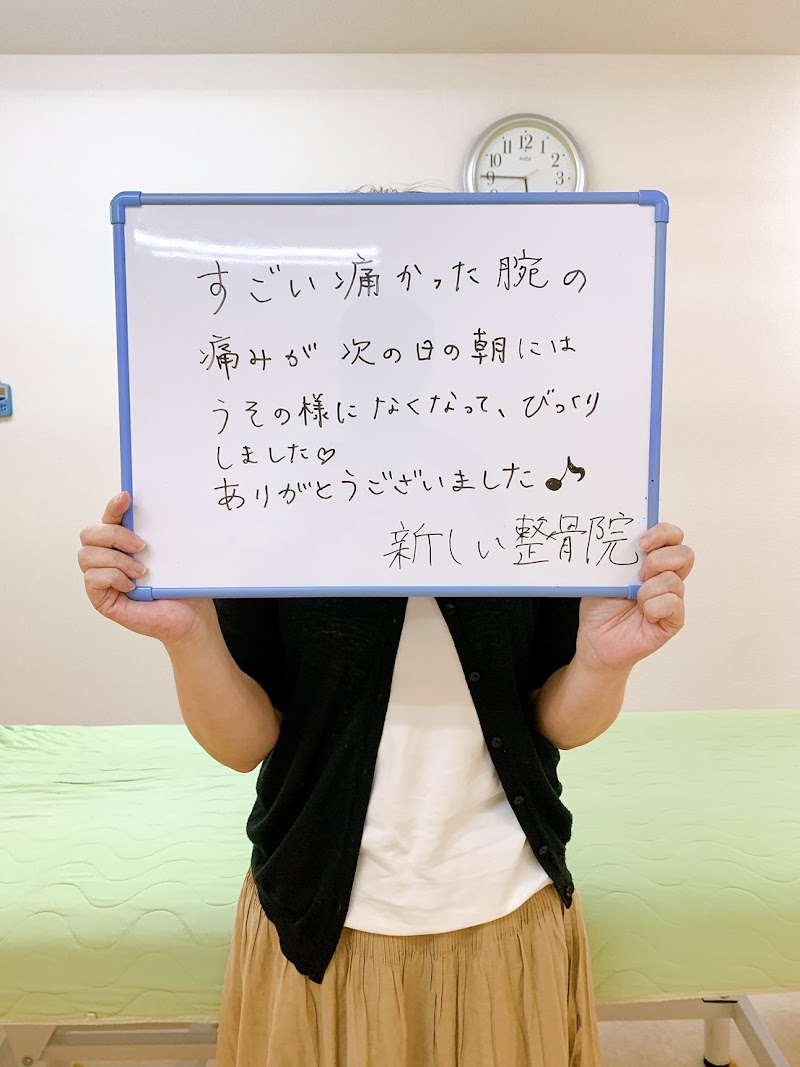 12
11
1
10
2
9
3
すごい痛かった腕の
痛みが次の日の朝には
うその様になくなって、びっくり
しました♡
ありがとうございました♪
新しい整骨院